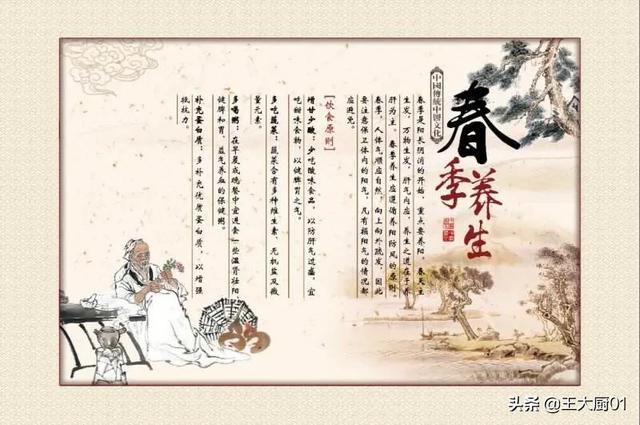 春季养生
中國傳統中醫文化
春季是阳长阴消的开始，重点要养阳，春天主
生发，万物生发，肝气内应，养生之道在于养
肝为主。春季养生应遵循养阳防风的原则。
春季，人体气顺应自然，向上向外疏发，因此
要注意保卫体内的阳气，凡有损阳气的情况都
应避免。
【饮食原则】
增甘少酸：少吃酸味食品，以防肝气过盛，宜
吃甜味食物，以健脾胃之气。
多吃蔬菜：蔬菜含有多种维生素、无机盐及微
量元素。
多喝粥：在早晨或晚餐中宜进食一些温肾壮阳
健脾和胃，益气养血的保健粥。
补充蛋白质：多补充优质蛋白质，以增强
抵抗力。
头条 @王大厨01